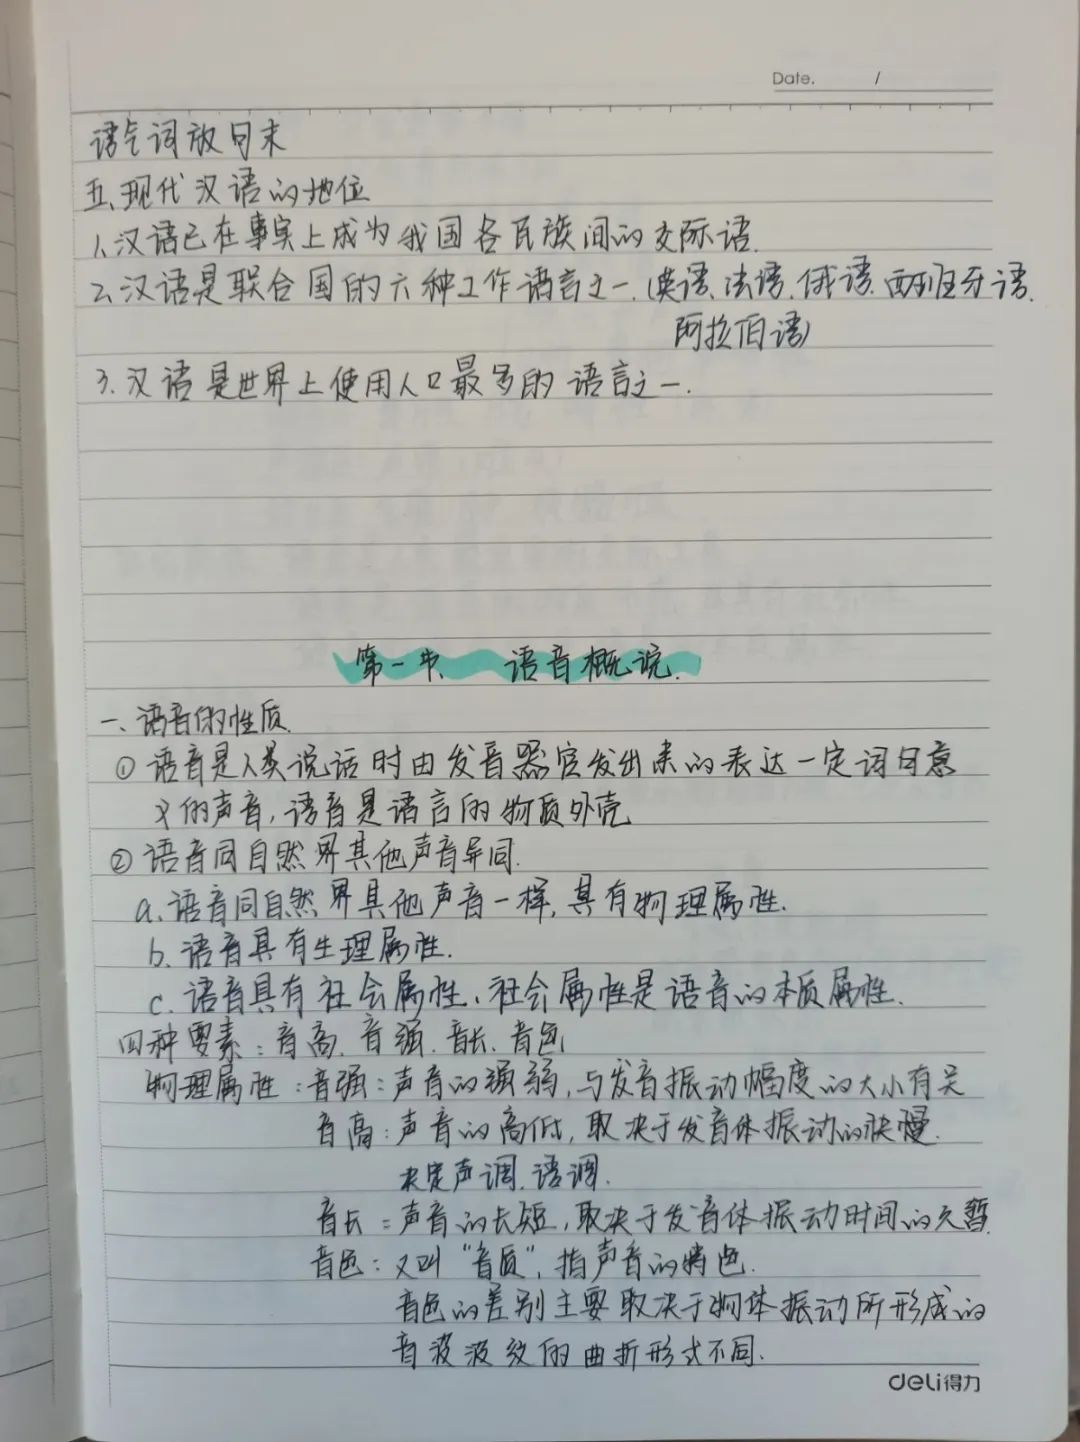 Date. /
语气词放句末
五、现代汉语的地位
1.汉语已在事实上成为我国各民族间的交际语.
2.汉语是联合国的六种工作语言之一.(英语、法语、俄语、西班牙语、
阿拉伯语)
3.汉语是世界上使用人口最多的语言之一.
第一节、 语音概说.
一、语音的性质.
①语音是人类说话时由发音器官发出来的表达一定词句意
义的声音,语音是语言的物质外壳
②语音同自然界其他声音异同.
a.语音同自然界其他声音一样,具有物理属性.
b.语音具有生理属性.
c.语音具有社会属性、社会属性是语音的本质属性.
四种要素:音高、音强、音长、音色
物理属性:音强:声音的强弱,与发音振动幅度的大小有关
音高:声音的高低,取决于发音体振动的快慢.
决定声调.语调.
音长:声音的长短,取决于发音体振动时间的久暂.
音色:又叫“音质”,指声音的特色.
音色的差别主要取决于物体振动所形成的
音波波纹的曲折形式不同.
deli得力